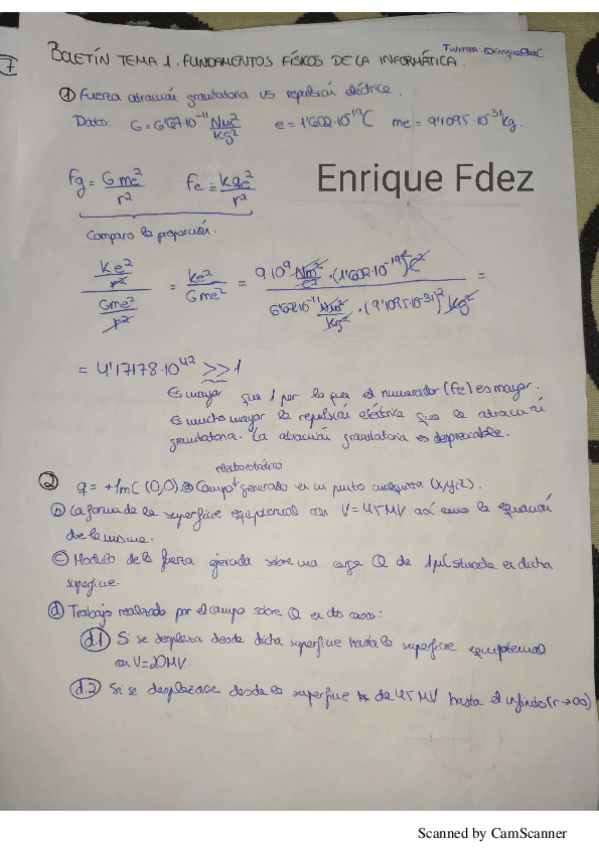 7
TWITTER:
BOLETÍN TEMA 1. FUNDAMENTOS FÍSICOS DE LA INFORMÁTICA.
① Fuerza atracción gravitatoria vs repulsión eléctrica.
Datos: G = 6'67·10^-11 Nm²/kg² e = 1'602·10^-19 C me = 9'1095·10^-31 kg.
Fg = G me²/r² Fe = K qe²/r²
Enrique Fdez
Comparo la proporción.
(Ke²/r²)/(Gme²/r²) = Ke²/Gme² = (9·10^9 Nm²/C² · (1'602·10^-19)² C²)/(6'67·10^-11 Nm²/kg² · (9'1095·10^-31)² kg²) =
= 4'17178·10^42 >> 1
Es mayor que 1 por lo que el numerador (Fe) es mayor.
Es mucho mayor la repulsión eléctrica que la atracción
gravitatoria. La atracción gravitatoria es despreciable.
electrostático
② q = +1mC (0,0) ⓐ Campo generado en un punto cualquiera (x,y,z).
ⓑ La forma de la superficie equipotencial con V=45 MV así como la ecuación
de la misma.
ⓒ Módulo de la fuerza ejercida sobre una carga Q de 1μC situada en dicha
superficie.
ⓓ Trabajo realizado por el campo sobre Q en dos casos:
d.1 Si se desplaza desde dicha superficie hasta la superficie equipotencial
con V=20MV.
d.2 Si se desplazase desde la superficie de 45 MV hasta el infinito (r→∞)
Scanned by CamScanner